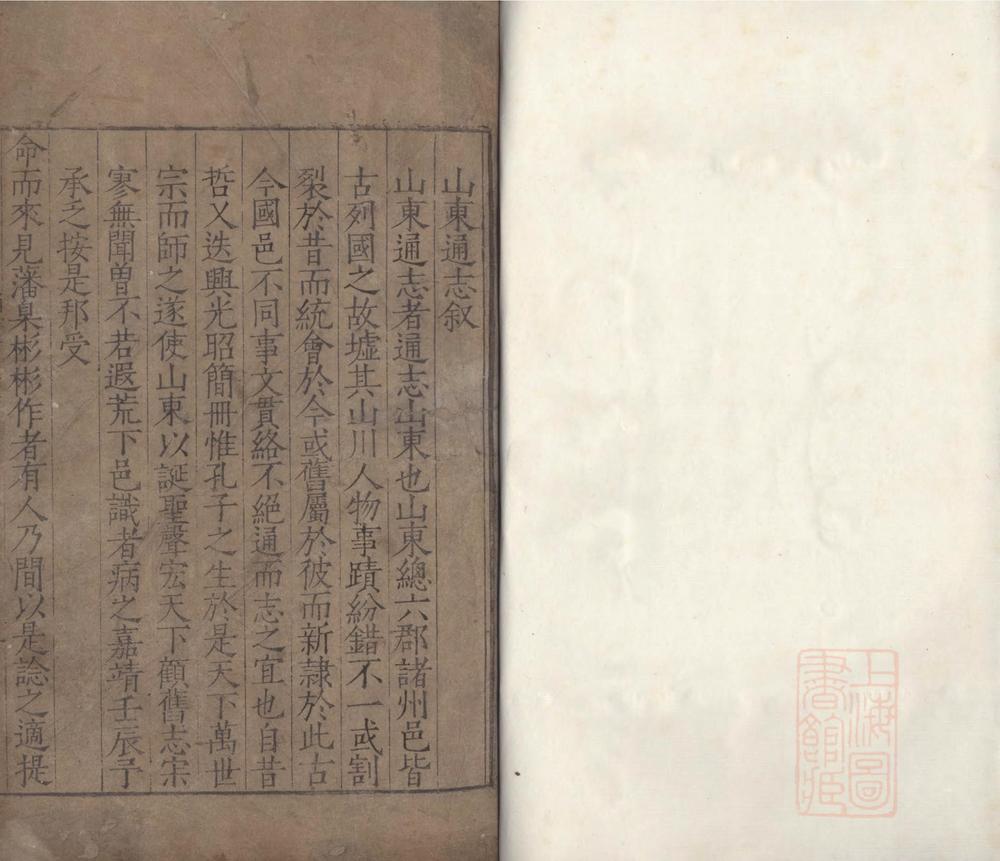 山東通志叙
山東通志者通志山東也山東總六郡諸州邑皆
古列國之故墟其山川人物事蹟紛錯不一或割
裂於昔而統會於今或舊屬於彼而新隷於此古
今國邑不同事文貫絡不絕通而志之宜也自昔
哲乂迭興光昭簡冊惟孔子之生於是天下萬世
宗而師之遂使山東以誕聖聲宏天下顧舊志宋
寥無聞曽不若遐荒下邑識者病之嘉靖壬辰予
承乏按是邦受
命而來見藩臬彬彬作者有人乃間以是諗之適提
上海圖
書館藏